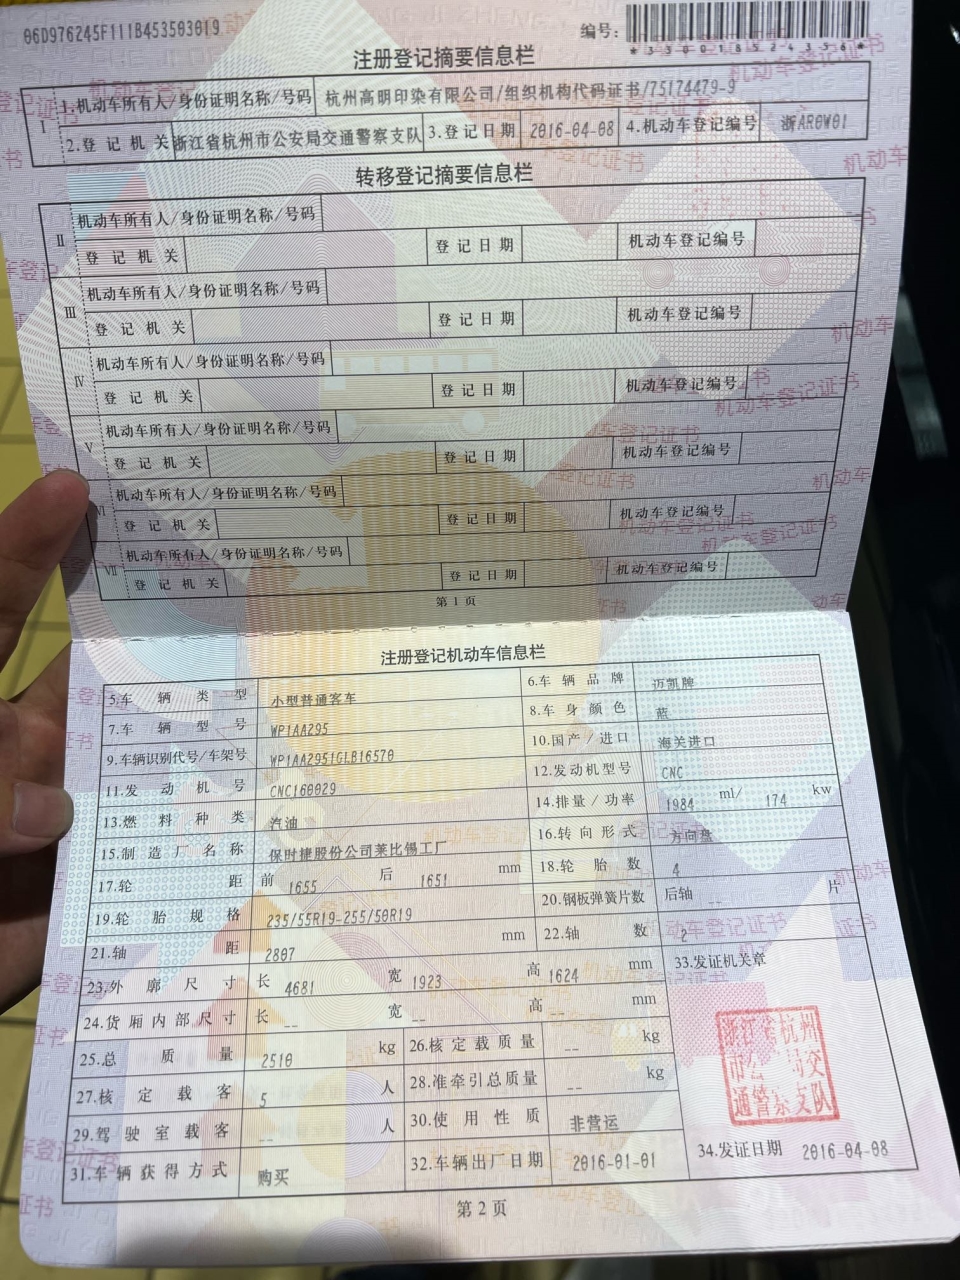 06D976245F111B453503019
编号：
*330018524356*
注册登记摘要信息栏
I 1.机动车所有人/身份证明名称/号码 杭州高明印染有限公司/组织机构代码证书/75174479-9
2.登记机关 浙江省杭州市公安局交通警察支队 3.登记日期 2016-04-08 4.机动车登记编号 浙AR0W01
转移登记摘要信息栏
II 机动车所有人/身份证明名称/号码
登记机关 登记日期 机动车登记编号
III 机动车所有人/身份证明名称/号码
登记机关 登记日期 机动车登记编号
IV 机动车所有人/身份证明名称/号码
登记机关 登记日期 机动车登记编号
V 机动车所有人/身份证明名称/号码
登记机关 登记日期 机动车登记编号
VI 机动车所有人/身份证明名称/号码
登记机关 登记日期 机动车登记编号
VII 机动车所有人/身份证明名称/号码
登记机关 登记日期 机动车登记编号
第1页
注册登记机动车信息栏
5.车辆类型 小型普通客车 6.车辆品牌 迈凯牌
7.车辆型号 WP1AA295 8.车身颜色 蓝
9.车辆识别代号/车架号 WP1AA2951GLB16570 10.国产/进口 海关进口
11.发动机号 CNC160029 12.发动机型号 CNC
13.燃料种类 汽油 14.排量/功率 1984 ml/ 174 kw
15.制造厂名称 保时捷股份公司莱比锡工厂 16.转向形式 方向盘
17.轮距 前 1655 后 1651 mm 18.轮胎数 4
19.轮胎规格 235/55R19-255/50R19 20.钢板弹簧片数 后轴 -- 片
21.轴距 2807 mm 22.轴数 2
23.外廓尺寸 长 4681 宽 1923 高 1624 mm 33.发证机关章
24.货厢内部尺寸 长 -- 宽 -- 高 -- mm
25.总质量 2510 kg 26.核定载质量 -- kg
27.核定载客 5 人 28.准牵引总质量 -- kg
29.驾驶室载客 -- 人 30.使用性质 非营运
31.车辆获得方式 购买 32.车辆出厂日期 2016-01-01 34.发证日期 2016-04-08
浙江省杭州
市公 局交
通警察支队
第2页